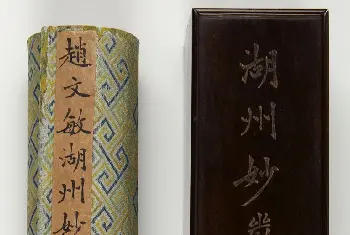 趙文敏湖州妙
湖州妙嚴